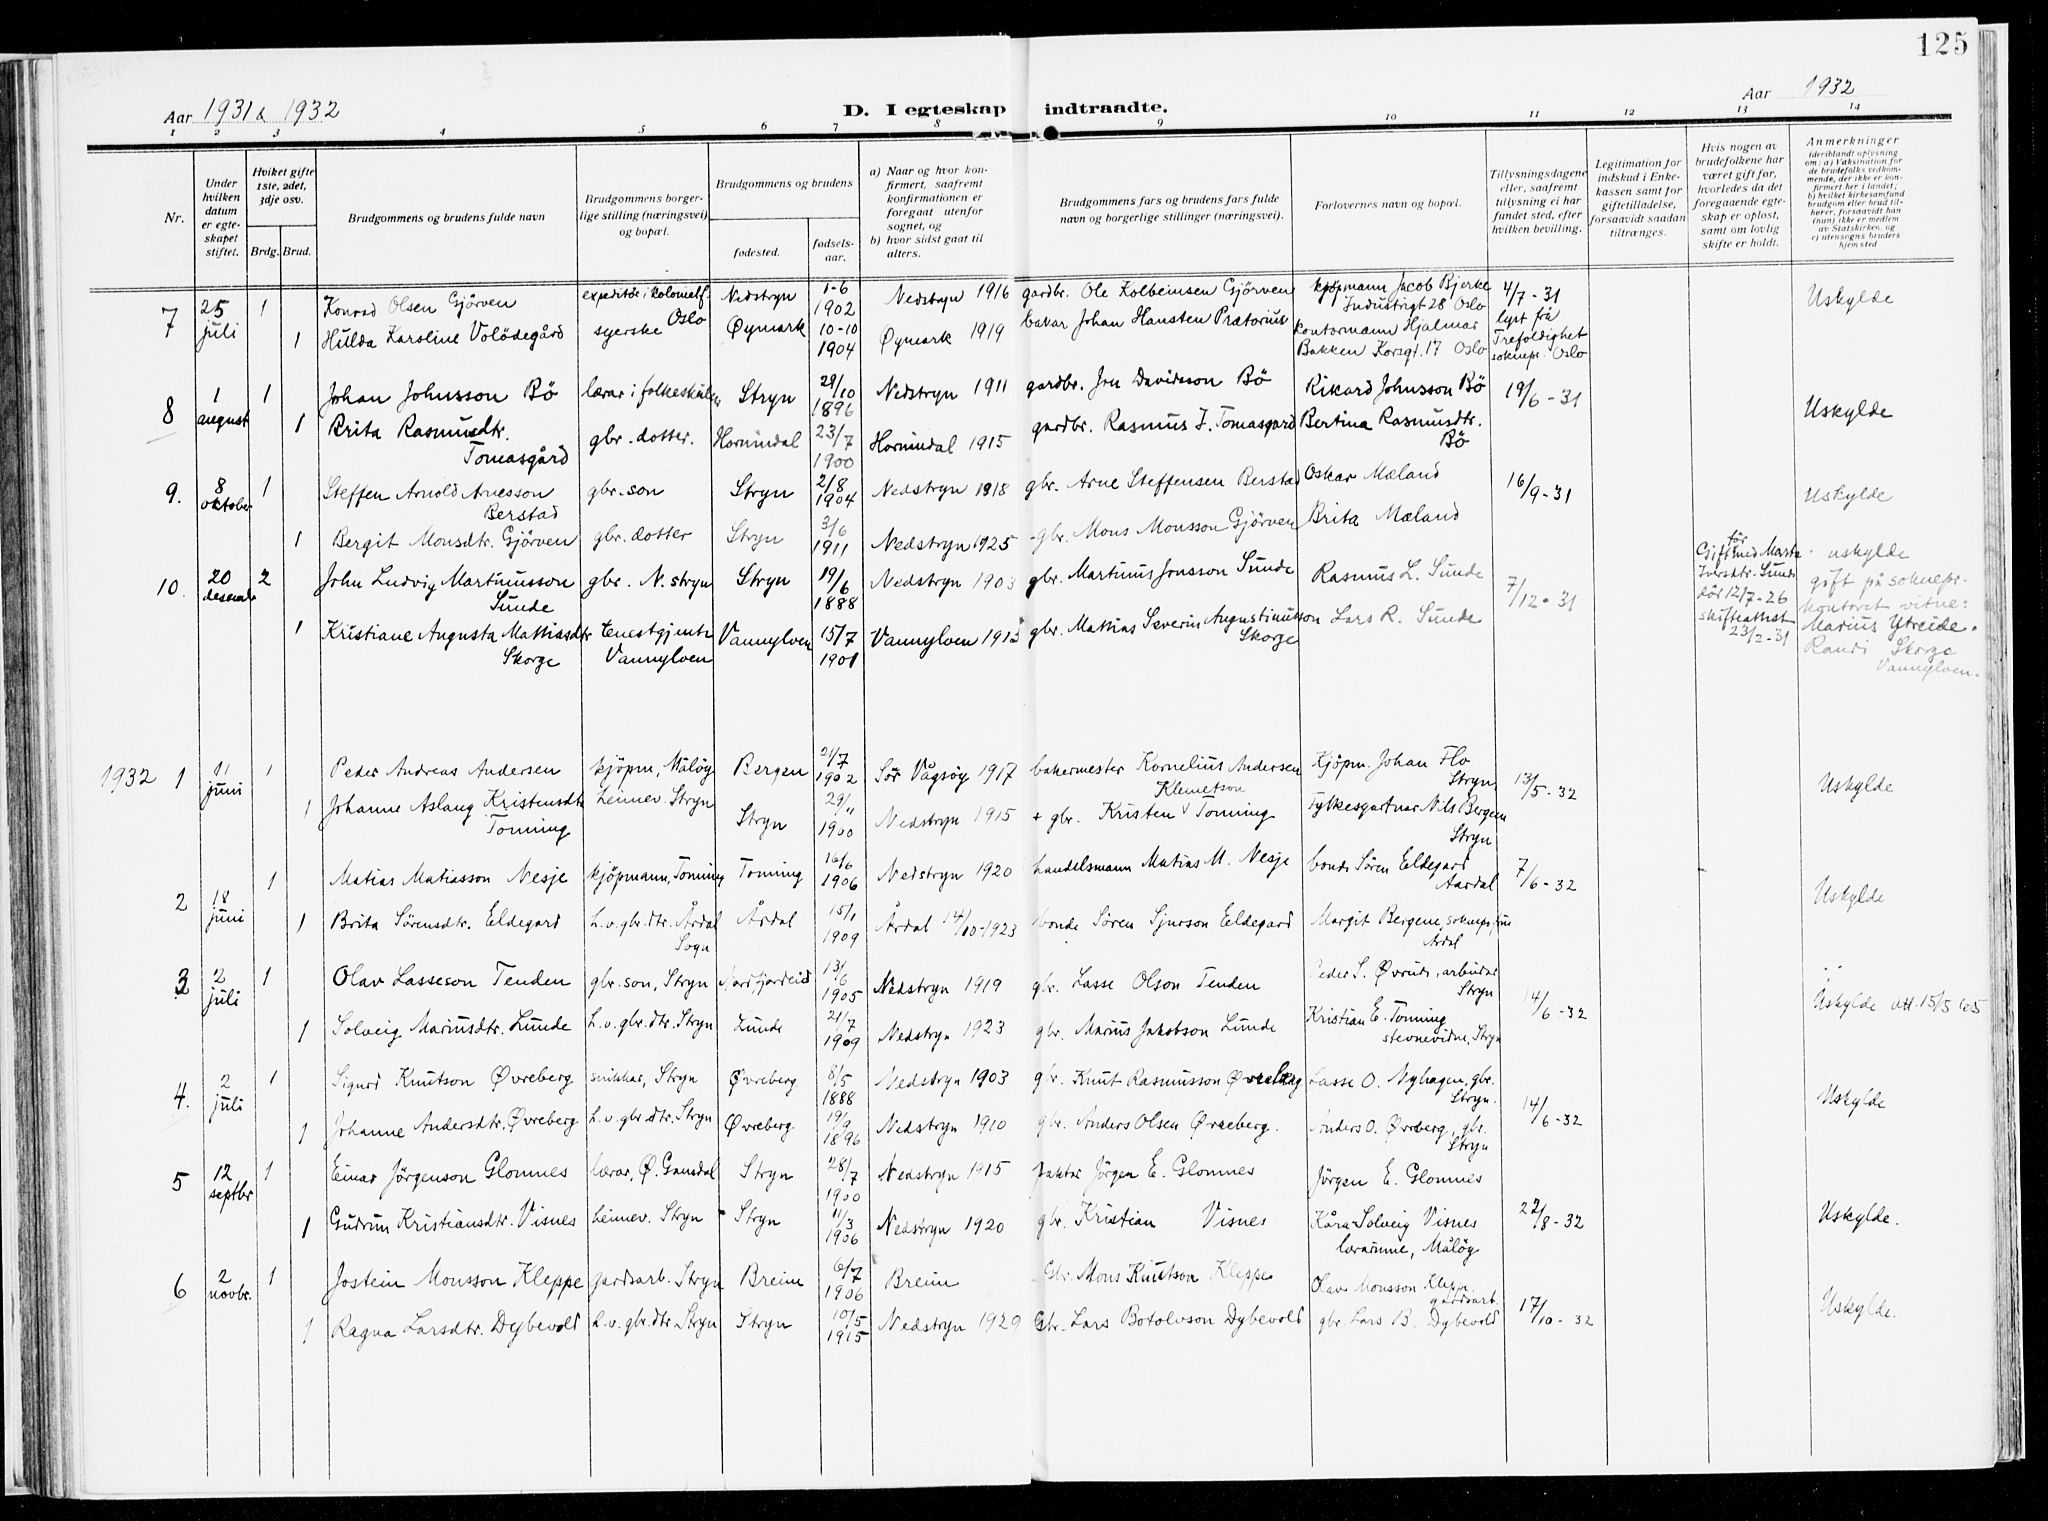 125
Aar 1931 & 1932
D. I egteskap indtraadte.
Aar 1932
1 2 3 4 5 6 7 8 9 10 11 12 13 14
Nr.
Under hvilken datum er egte-skapet stiftet.
Hviket gifte 1ste, 2det, 3dje osv.
Brdg. Brud.
Brudgommens og brudens fulde navn
Brudgommens borger-lige stilling (næringsvei) og bopæl.
Brudgommens og brudens
fødested.
fødsels-aar.
a) Naar og hvor kon-firmert, saafremt konfirmationen er foregaat utenfor sognet, og
b) hvor sidst gaat til alters.
Brudgommens fars og brudens fars fulde navn og borgerlige stillinger (næringsvei).
Forlovernes navn og bopæl.
Tillysningsdagene eller, saafremt tillysning ei har fundet sted, efter hvilken bevilling.
Legitimation for indskud i Enke-kassen samt for giftetilladelse, forsaavidt saadan tiltrænges.
Hvis nogen av brudefolkene har været gift før, hvorledes da det foregaaende egte-skap er opløst, samt om lovlig skifte er holdt.
Anmerkninger (deriblandt oplysning om: a) Vaksination for de brudefolks vedkom-mende, der ikke er kon-firmert her i landet; b) hvilket kirkesamfund brudgom eller brud til-hører, forsaavidt han (hun) ikke er medlem av Statskirken, og c) utensogns bruders hjemsted
7 25 juli 1 Konrad Olsen Gjörven expeditör i kolonialf. Oslo Nedstryn 1-6 1902 Nedstryn 1916 gardbr. Ole Kolbeinsen Gjörven kjøpmann Jacob Bjerke Industrigt 28 Oslo 4/7 - 31 Uskylde
1 Hulda Karoline Volödegård syerske Øymark 10-10 1904 Øymark 1919 bakar Johan Hansten Prætorius kontormann Hjalmar Bakken Korsgt. 17 Oslo lyst frå Trefoldighet soknepr. Oslo
8 1 august 1 Johan Johnsson Bö lærar i folkeskulen Stryn 29/10 1896 Nedstryn 1911 gardbr. Jon Davidsson Bö Rikard Johnsson Bö 19/6 - 31 Uskylde
1 Brita Rasmusdtr. Tomasgård gbr. dotter. Hornindal 23/7 1900 Hornindal 1915 gardbr. Rasmus J. Tomasgard Bertina Rasmusdtr. Bö
9. 8 oktober 1 Steffen Arnold Arnesson Berstad gbr. son Stryn 2/8 1904 Nedstryn 1918 gbr. Arne Steffensen Berstad Oskar Mæland 16/9 - 31 Uskylde
1 Bergit Monsdtr. Gjörven gbr. dotter Stryn 3/6 1911 Nedstryn 1925 gbr. Mons Monsson Gjörven Brita Mæland
10. 20 desembr 2 John Ludvig Martinusson Sunde gbr. N. stryn Stryn 19/6 1888 Nedstryn 1903 gbr. Martinus Jonsson Sunde Rasmus L. Sunde 7/12 - 31 Gift för med Marta Iversdtr. Sunde dör 12/7-26 skifteattest 23/2-31 uskylde gift på soknepr. kontoret vitne: Marius Ytreide. Randi Skorge Vannylven.
1 Kristiane Augusta Mattiasdtr Skorge tenestgjente Vannylven Vannylven 15/7 1901 Vannylven 1915 gbr. Mattias Severin Augustinusson Skorge Lars R. Sunde
1932 1 11 juni 1 Peder Andreas Andersen kjöpm, Målöy Bergen 21/7 1902 Sör Vågsöy 1917 bakermester Kornelius Andersen Kjöpm. Johan Flo Stryn 13/5 - 32 Uskylde
1 Johanne Aslaug Kristensdtr Tonning heimev. Stryn Stryn 29/11 1900 Nedstryn 1915 + gbr. Kristen Klemetson Tonning Fylkesgartnar Nils Bergem Stryn
2 18 juni 1 Matias Matiasson Nesje kjöpmann, Tonning Tonning 16/6 1906 Nedstryn 1920 handelsmann Matias M. Nesje bonde Sören Eldegard Aardal 7/6 - 32 Uskylde
1 Brita Sörensdtr. Eldegard h.v. gbr. dtr. Årdal Sogn Årdal 15/1 1909 Årdal 14/10-1923 bonde Sören Sjurson Eldegard Margit Bergene, Ardal
3 2 juli 1 Olav Lasseson Tenden gbr. son, Stryn Nordfjordeid 13/6 1905 Nedstryn 1919 gbr. Lasse Olson Tenden Peder S. Øvrum, arbeidar Stryn 14/6 - 32 Uskylde att. 15/5
1 Solveig Mariusdtr. Lunde h.v. gbr. dtr. Stryn Lunde 21/7 1909 Nedstryn 1923 gbr. Marius Jakobson Lunde Kristian E. Tonning stevnevidne, Stryn
4. 2 juli 1 Sigurd Knutson Øvreberg snikkar, Stryn Øvreberg 8/5 1888 Nedstryn 1903 gbr. Knut Rasmusson Øvreberg Lasse O. Myhagen, gbr. Stryn. 14/6 - 32 Uskylde
1 Johanne Andersdtr. Øvreberg h.v. gbr. dtr. Stryn Øvreberg 19/9 1896 Nedstryn 1910 gbr. Anders Olsen Øvreberg. Anders O. Øvreberg, gbr. Stryn
5 12 septbr 1 Einar Jörgenson Glomnes lærar, Ø. Gausdal Stryn 28/7 1900 Nedstryn 1915 faktor Jörgen E. Glomnes Jörgen E. Glomnes 22/8 - 32 Uskylde.
1 Gudrun Kristiansdtr. Visnes heimev. Stryn Stryn 11/3 1906 Nedstryn 1920 gbr. Kristian Visnes Kåra Solveig Visnes lærarinne, Målöy
6 2 novbr. 1 Jostein Monsson Kleppe gardsarb. Stryn Breim 6/7 1906 Breim Gbr. Mons Knutson Kleppe Olav Monsson Kleppe gardsarb. 17/10 - 32 Uskylde.
1 Ragna Larsdtr. Dybevold h.v. gbr. dtr. Stryn Stryn 10/5 1915 Nedstryn 1929 Gbr. Lars Botolvson Dybevold gbr. Lars B. Dybevold